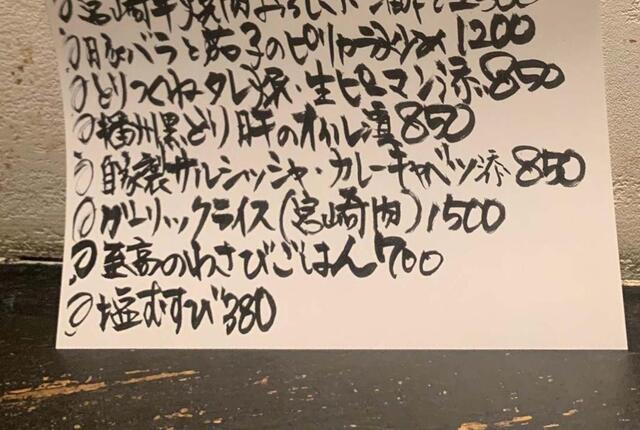 宮崎牛焼肉おろしポン酢
豚バラと茄子のピリ辛炒め 1200
とりつくねタレ焼・生ピーマン添 850
播州黒どり肝のオイル漬 850
自家製サルシッシャ・カレーキャベツ添 850
ガーリックライス(宮崎肉) 1500
至高のわさびごはん 700
塩むすび 380